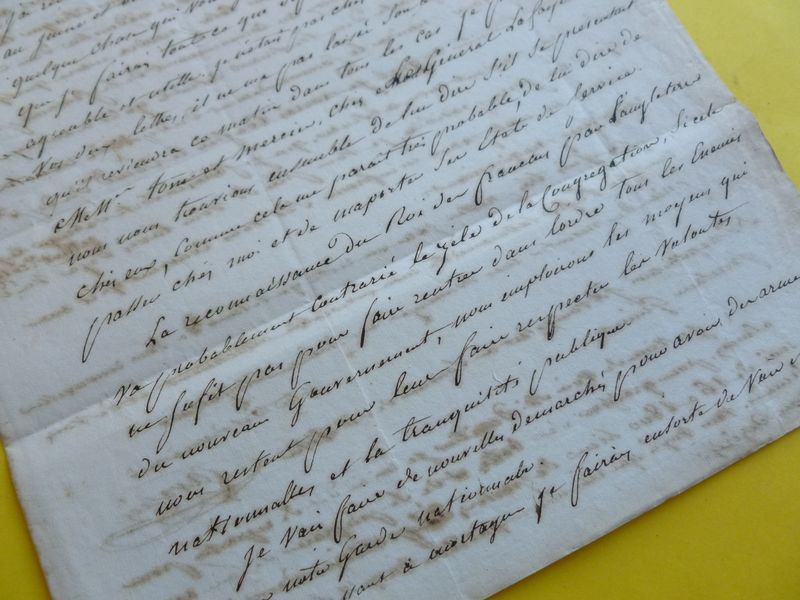 au jeune et m
quelque chose qui vous
que je fairai tout ce que de
agreable et utille, je n'étais pas chez
vos deux lettres, il ne m'a pas laissé son a
qu'il reviendra ce matin dans tous les cas je p
M.Mrs tomé et mercier, chez le General Lafaye
nous nous trouvions ensemble de lui dire s'il se présentait
chez eux, comme cela me parait très probable, de lui dire de
passer chez moi et de m'aporter ses Etats de Service.
La reconnaissance du Roi des français par l'angleterre
va probablement contrarié le zèle de la Congrégation, si cela
ne sufit pas pour faire rentrer dans l'ordre tous les Ennemis
du nouveau Gouvernement, nous emploirons les moyens qui
nous restent pour leur faire respecter les Volontés
nationnalles et la tranquilité publique.
je vais faire de nouvelles demarches pour avoir des arme
notre Garde nationnale.
à mortagne je fairai ensorte de Voir